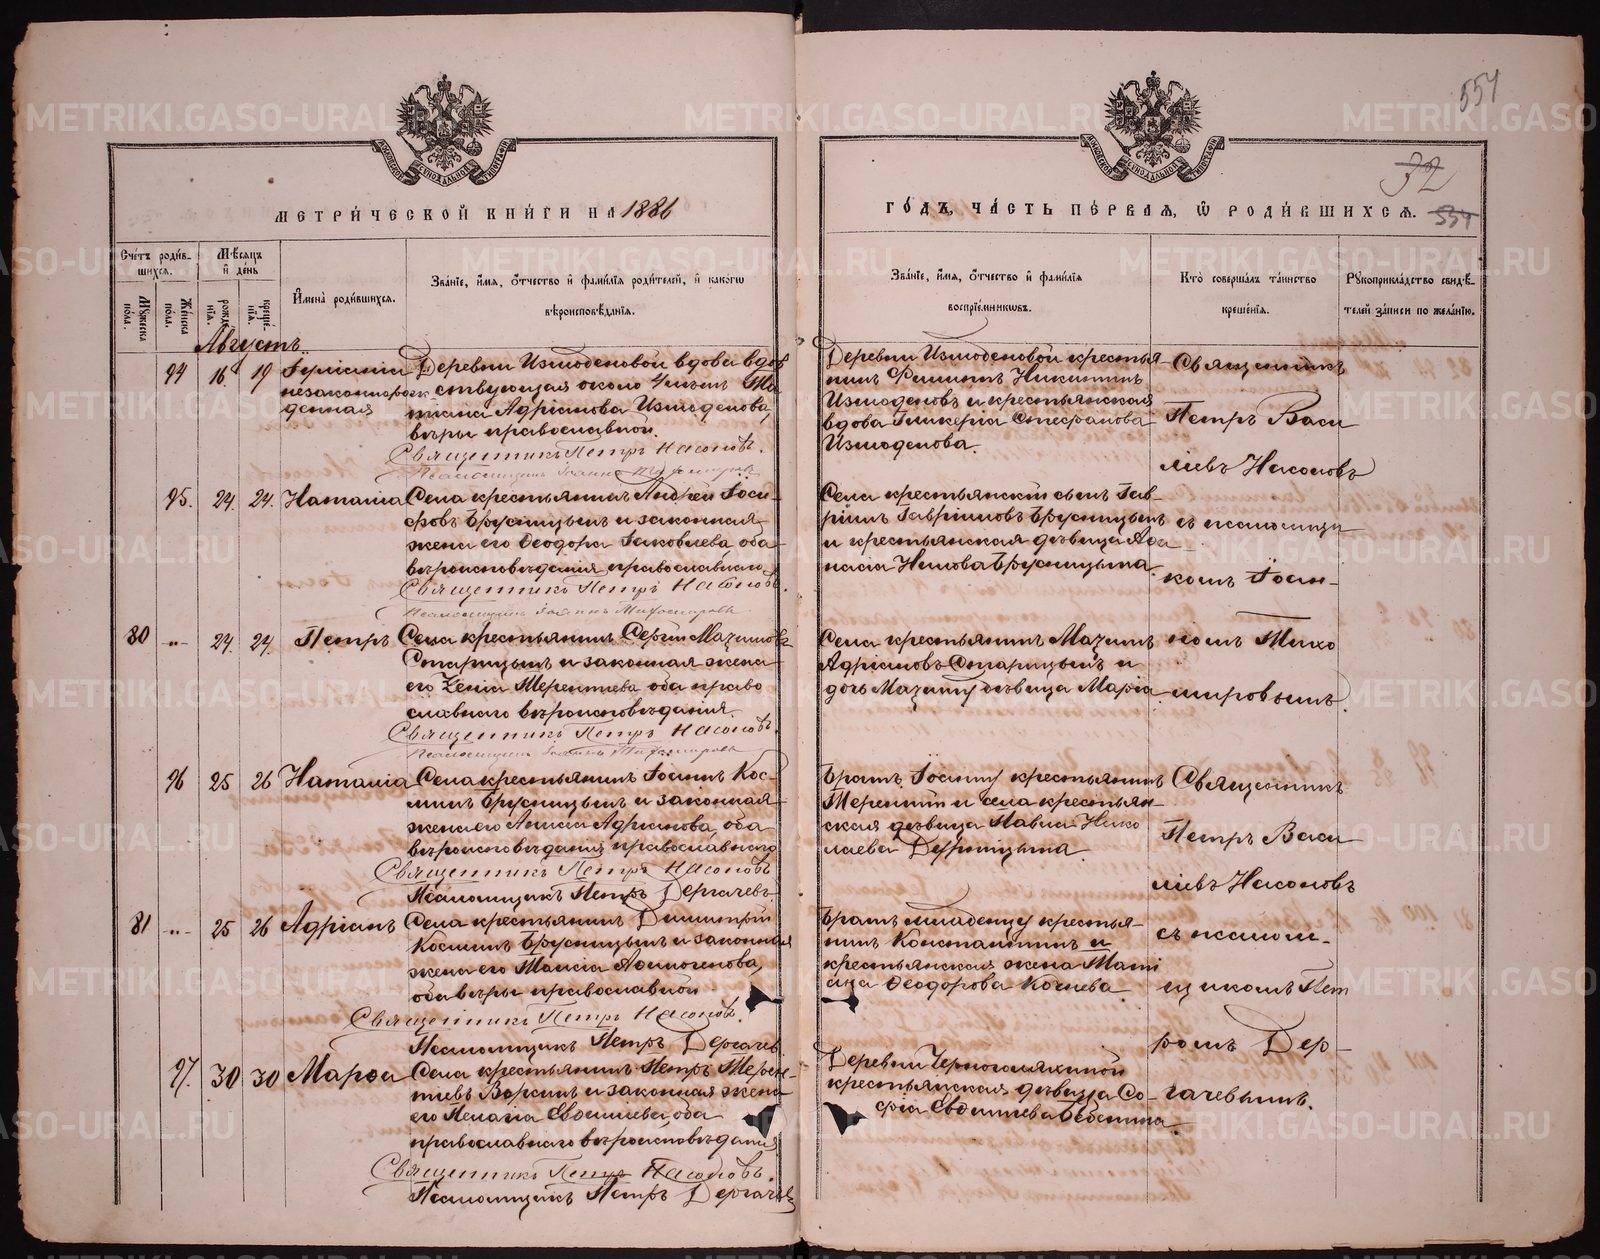 554
32
554
МЕТРИ́ЧЕСКОЙ КНИ́ГИ НА 1886
ГО́ДЪ, ЧА́СТЬ ПЕ́РВАЯ, Ѽ РОДИ́ВШИХСЯ.
Сче́тъ роди́в-
шихся.
Мѣ́сяцъ
и҆ де́нь
Мꙋ́жеска
по́ла.
Же́нска
по́ла.
рожде́
нїѧ.
креще́
нїѧ.
И҆мена̀ роди́вшихся.
Зва́нїе, и҆́мя, ѻ҆́тчество и҆ фамилїѧ роди́телей, и҆ како́гѡ
вѣроисповѣ́данїѧ.
Зва́нїе, и҆́мя, ѻ҆́тчество и҆ фамилїѧ
воспрїе́мникѡвъ.
Кто̀ соверша́лъ та́инство
креще́нїѧ.
Рꙋкоприкла́дство свидѣ́-
телей за́писи по жела́нїю.
Августъ
94 16. 19 Гликерія
незаконнорож
денная
Деревни Измоденовой вдова вдов
ствующая около Та
тіана Адріанова Измоденова,
вѣры православной.
Священникъ Петръ Насоновъ.
Псаломщикъ Іоаннъ Тихомировъ
Деревни Измоденовой крестья
нинъ Филиппъ Никитинъ
Измоденовъ и крестьянская
вдова Гликерія Стефанова
Измоденова.
Священникъ
Петръ Васи
ліевъ Насоновъ
95. 24. 24. Наталія
Села крестьянинъ Андрей Іоси-
фовъ Брусницынъ и законная
жена его Ѳеодора Іаковлева, оба
вѣроисповѣданія православнаго
Священникъ Петръ Насоновъ.
Псаломщикъ Іоаннъ Тихомировъ
Села крестьянскій сынъ Гав-
ріилъ Гавріиловъ Брусницынъ
и крестьянская дѣвица Аѳа
насія Нилова Брусницына
съ псаломщи
комъ Іоан-
80 -"- 24. 24. Петръ
Села крестьянинъ Сергій Мазиповъ
Старицынъ и законная жена
его Ксенія Терентіева оба право
славнаго вѣроисповѣданія.
Священникъ Петръ Насоновъ.
Псаломщикъ Іоаннъ Тихомировъ
Села крестьянинъ
Адріановъ Старицынъ и
дочь дѣвица Марія
номъ Тихо
мировымъ.
96 25 26 Наталія
Села крестьянинъ Іоаннъ Кос-
минъ Брусницынъ и законная
жена его Анисія Адріанова, оба
вѣроисповѣданія православнаго
Священникъ Петръ Насоновъ
Псаломщикъ Петръ Дергачевъ
Братъ Іоанну крестьянинъ
Терентій и села крестьян-
ская дѣвица Павла Нико
лаева
Священникъ
Петръ Васи
ліевъ Насоновъ
81 -"- 25 26 Адріанъ
Села крестьянинъ Димитрій
Косминъ Брусницынъ и законная
жена его Таисія Аѳиногенова,
оба вѣры православной
Священникъ Петръ Насоновъ.
Псаломщикъ Петръ Дергачевъ
Братъ младенцу крестья-
нинъ Константинъ и
крестьянская жена Маті
Ѳеодорова Кочнева
съ псаломи-
щикомъ Пет
ромъ Дер-
97. 30 30 Марѳа
Села крестьянинъ Петръ Терен-
тіевъ и законная жена
его Пелагія Евфиміева, оба
православнаго вѣроисповѣданія
Священникъ Петръ Насоновъ.
Псаломщикъ Петръ Дергачевъ
Деревни
крестьянская дѣвица Со-
фія Евфиміева Бобенина.
гачевымъ.
METRIKI.GASO-URAL.RU